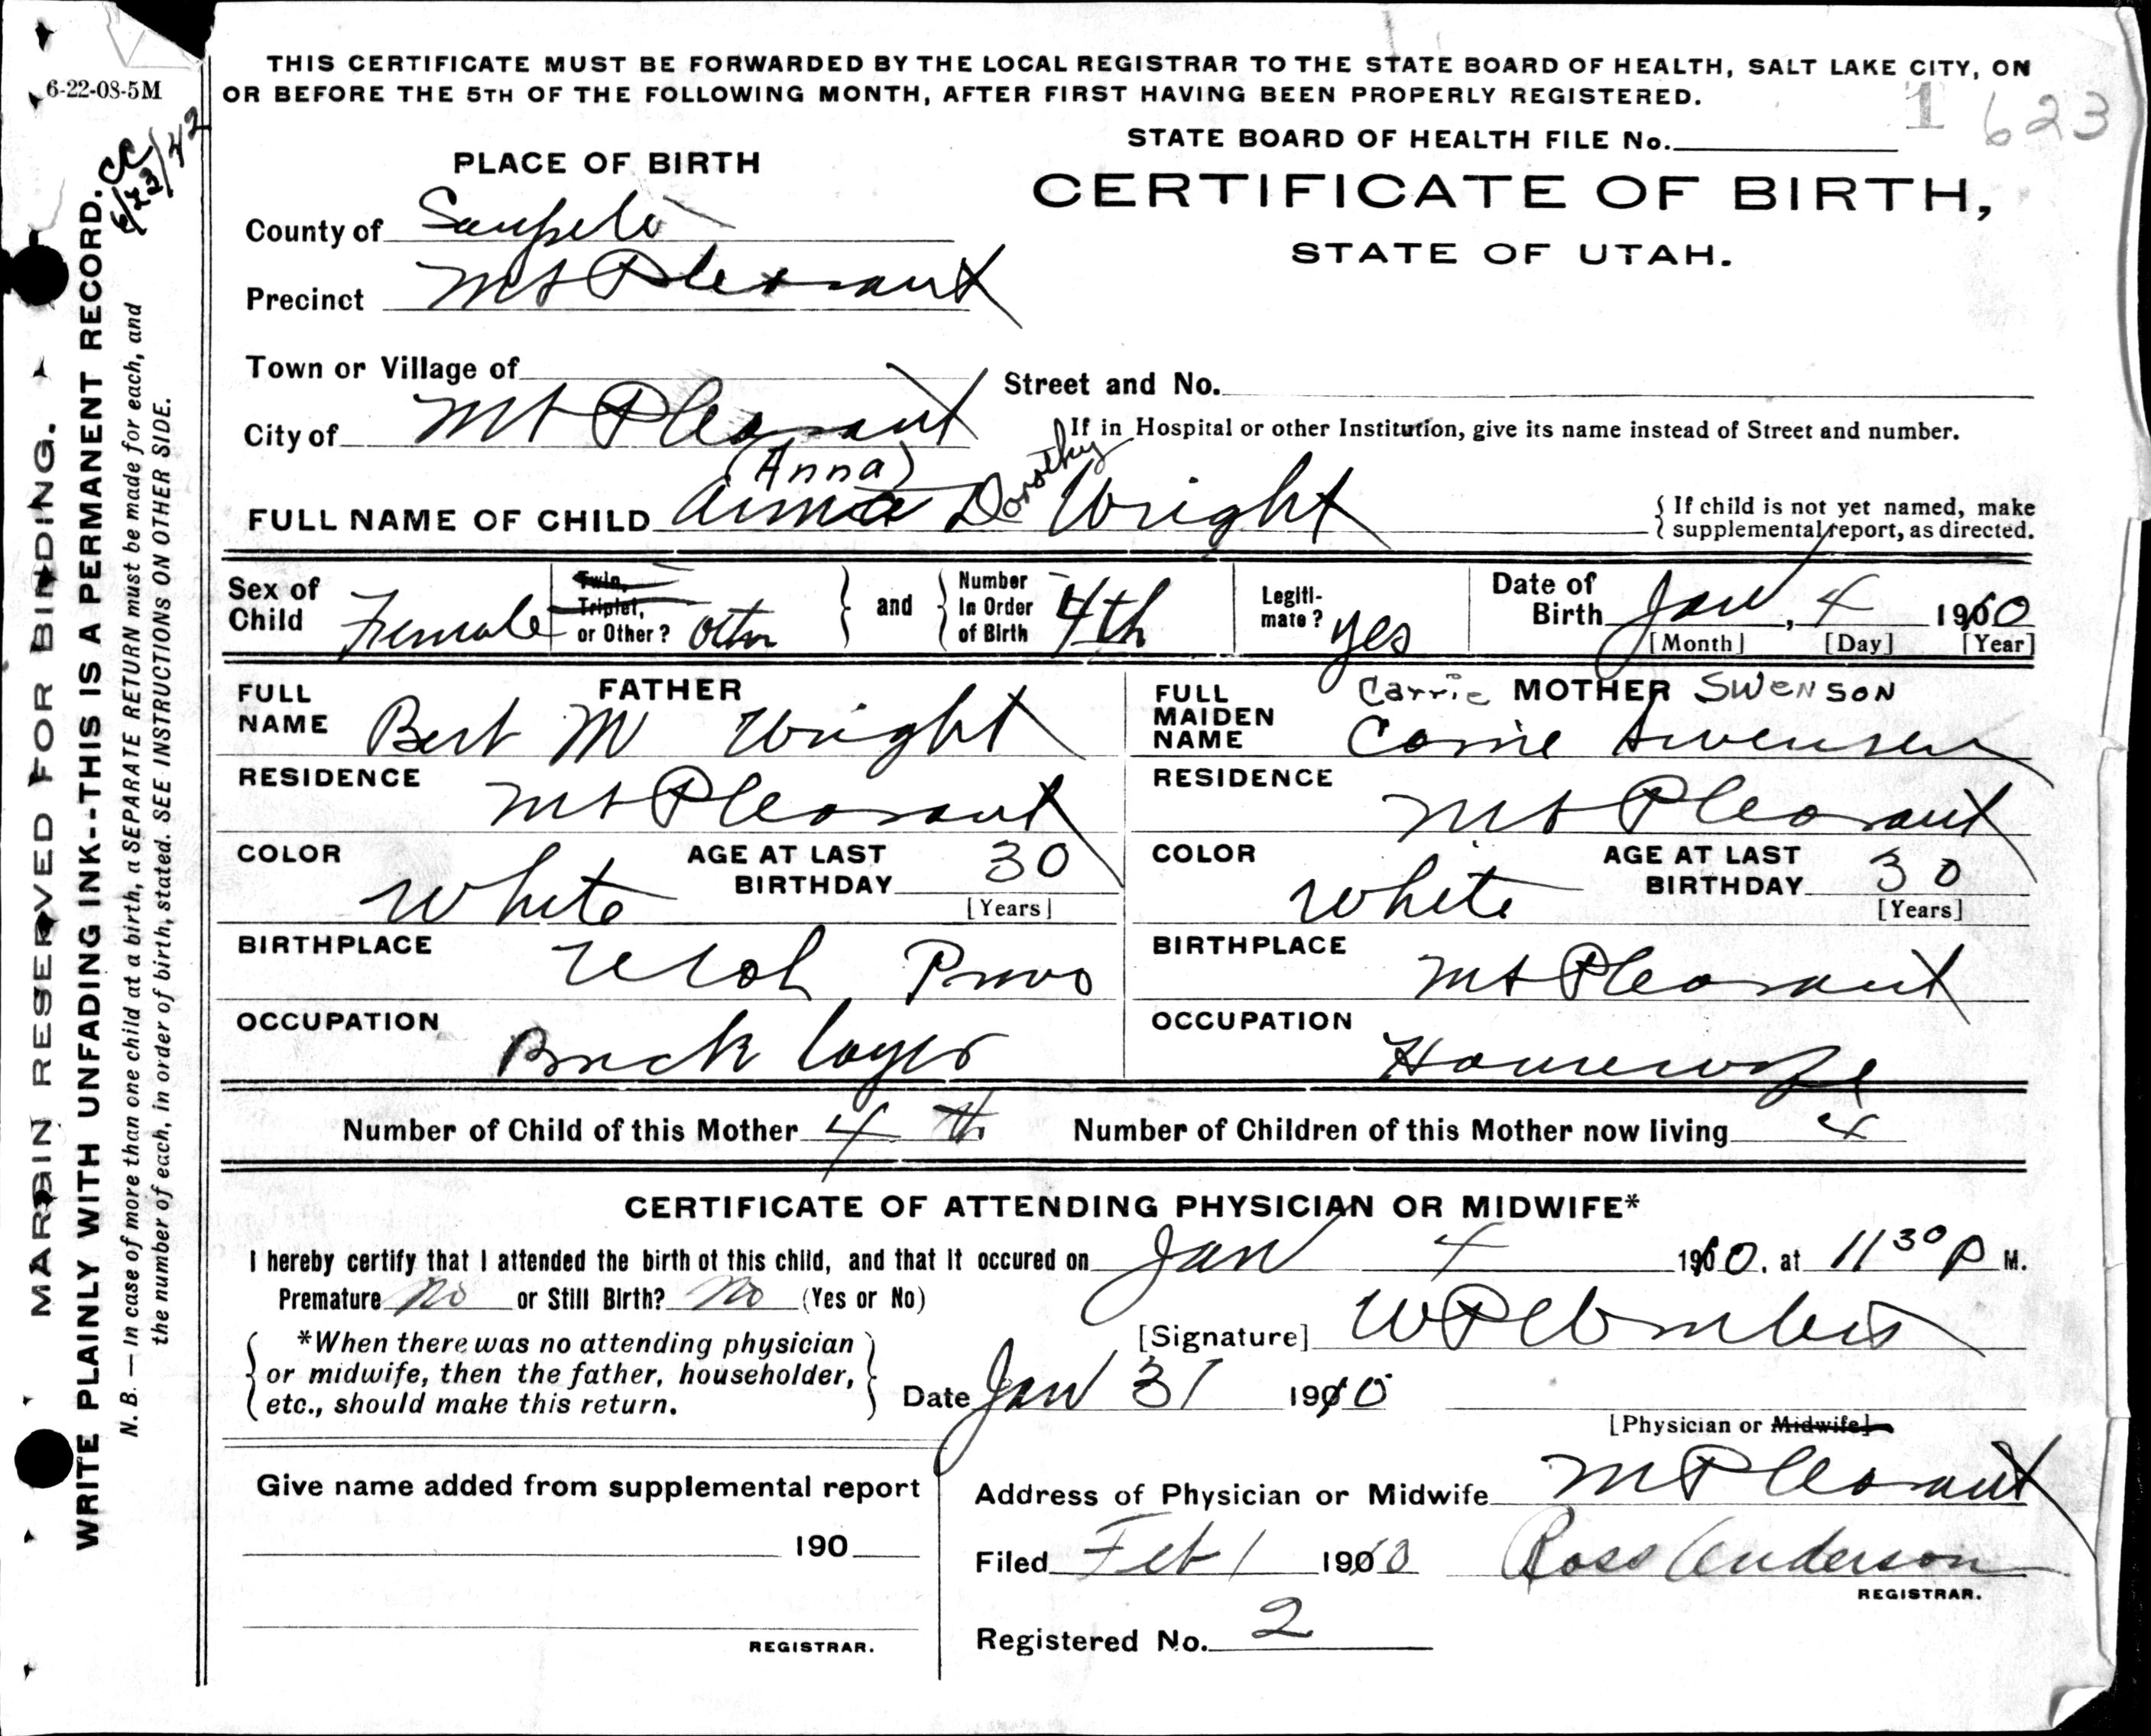 6-22-08-5M
THIS CERTIFICATE MUST BE FORWARDED BY THE LOCAL REGISTRAR TO THE STATE BOARD OF HEALTH, SALT LAKE CITY, ON
OR BEFORE THE 5TH OF THE FOLLOWING MONTH, AFTER FIRST HAVING BEEN PROPERLY REGISTERED.
1 623
STATE BOARD OF HEALTH FILE No.
CERTIFICATE OF BIRTH,
STATE OF UTAH.
PLACE OF BIRTH
County of Sanpete
Precinct Mt Pleasant
Town or Village of
Street and No.
City of Mt Pleasant
If in Hospital or other Institution, give its name instead of Street and number.
(Anna)
FULL NAME OF CHILD Anna Dorothy Wright
{ If child is not yet named, make
{ supplemental report, as directed.
Sex of Child Female
Twin, Triplet, or Other? other
and
Number In Order of Birth 4th
Legiti-mate? yes
Date of Birth Jan, 4 1910
[Month] [Day] [Year]
FATHER
FULL NAME Bert M Wright
RESIDENCE Mt Pleasant
COLOR White
AGE AT LAST BIRTHDAY 30
[Years]
BIRTHPLACE Utah Provo
OCCUPATION Brick layer
Carrie MOTHER SWENSON
FULL MAIDEN NAME Carrie Swensen
RESIDENCE Mt Pleasant
COLOR White
AGE AT LAST BIRTHDAY 30
[Years]
BIRTHPLACE Mt Pleasant
OCCUPATION Housewife
Number of Child of this Mother 4 th
Number of Children of this Mother now living 4
CERTIFICATE OF ATTENDING PHYSICIAN OR MIDWIFE*
I hereby certify that I attended the birth of this child, and that it occured on Jan 4 1910. at 11 30 P M.
Premature No or Still Birth? No (Yes or No)
*When there was no attending physician
or midwife, then the father, householder,
etc., should make this return.
[Signature]
Date Jan 31 1910
[Physician or Midwife]
Address of Physician or Midwife M Pleasant
Filed Feb 1 1910 Ross Anderson
REGISTRAR.
Registered No. 2
Give name added from supplemental report
190
REGISTRAR.
MARGIN RESERVED FOR BINDING.
WRITE PLAINLY WITH UNFADING INK--THIS IS A PERMANENT RECORD.
N. B. — In case of more than one child at a birth, a SEPARATE RETURN must be made for each, and
the number of each, in order of birth, stated. SEE INSTRUCTIONS ON OTHER SIDE.